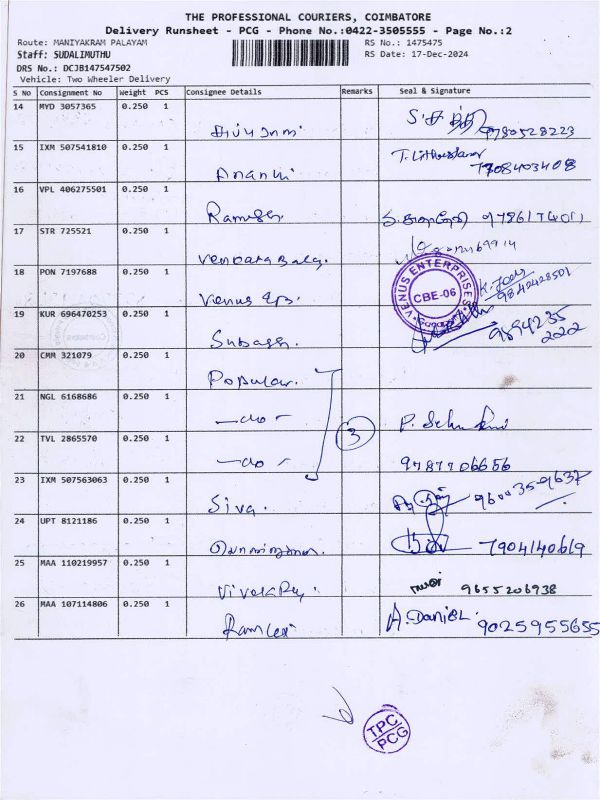 THE PROFESSIONAL COURIERS, COIMBATORE
Delivery Runsheet - PCG - Phone No.:0422-3505555 - Page No.:2
Route: MANIYAKRAM PALAYAM RS No.: 1475475
Staff: SUDALIMUTHU RS Date: 17-Dec-2024
DRS No.: DCJB147547502
Vehicle: Two Wheeler Delivery
S No Consignment No Weight PCS Consignee Details Remarks Seal & Signature
14 MYD 3057365 0.250 1 9780528223
15 IXM 507541810 0.250 1 Ananthi 7708403408
16 VPL 406275501 0.250 1 Ramesh 9786174011
17 STR 725521 0.250 1
18 PON 7197688 0.250 1 Venus VENUS ENTERPRISES CBE-06 9842428501
19 KUR 696470253 0.250 1 Subash 9894235222
20 CMM 321079 0.250 1 Popular.
21 NGL 6168686 0.250 1 -do- 3
22 TVL 2865570 0.250 1 -do- 9787706656
23 IXM 507563063 0.250 1 Siva.
24 UPT 8121186 0.250 1 7904140619
25 MAA 110219957 0.250 1 9655206938
26 MAA 107114806 0.250 1 A. DaniEL. 9025955655
TPC
PCG